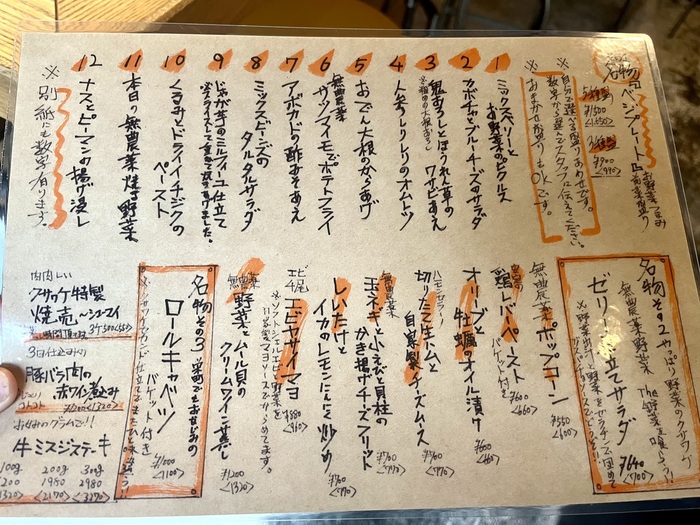 名物 ベジプレート
お野菜つまみ
前菜盛り
5種盛 ¥1500 <1650>
3種盛 ¥900 <990>
※自分で選べる盛り合わせです。
数字から選んでスタッフに伝えてください。
※おまかせ盛りもOKです。
1 ミックスベリーと
お野菜のピクルス
2 カボチャとブルーチーズのサラダ
3 鬼おろしとほうれん草の
ワサビあえ
4 人参しりしりのオムレツ
5 おでん大根のからあげ
6 無農薬
サツマイモでポテトフライ
7 アボカドの酢みそあえ
8 ミックスビーンズの
タルタルサラダ
9 じゃが芋のミルフィーユ仕立て
※スライスして重ねて焼き
10 くるみとドライイチジクの
ペースト
11 本日の無農薬焼き野菜
12 ナスとピーマンの揚げ浸し
※別紙にも数字有ります。
名物その2 やっぱり野菜のクサワケ
無農薬野菜 The野菜を喰らう!!
ゼリー仕立てサラダ ¥640 <704>
無農薬 ポップコーン ¥550 <600>
鶏レバーペースト
バケット付き ¥600 <660>
オリーブと
牡蠣のオイル漬け ¥600 <660>
ハモンセラーノ
切りたて生ハムと
自家製チーズムース ¥900 <990>
無農薬
玉ネギと小えびと貝柱の
かき揚げチーズフリット ¥700 <770>
しいたけと
イカのレモンにんにく炒め ¥700 <770>
エビヤサイマヨ ¥880 <960>
※ソフトシェルエビと野菜を
無農薬
野菜とムール貝の
クリームワイン蒸し ¥1200 <1320>
名物その3 栄町でもおなじみの
ロールキャベツ
バケット付き ¥1000 <1100>
肉肉しい
クサワケ特製
焼売
3ケ 500<550>
3日仕込みの
豚バラ肉の
赤ワイン煮込み
¥1200<1320>
お好みのグラムで!!
牛ミスジステーキ
100g 200g 300g
1200 1980 2980
<1320> <2170> <3270>